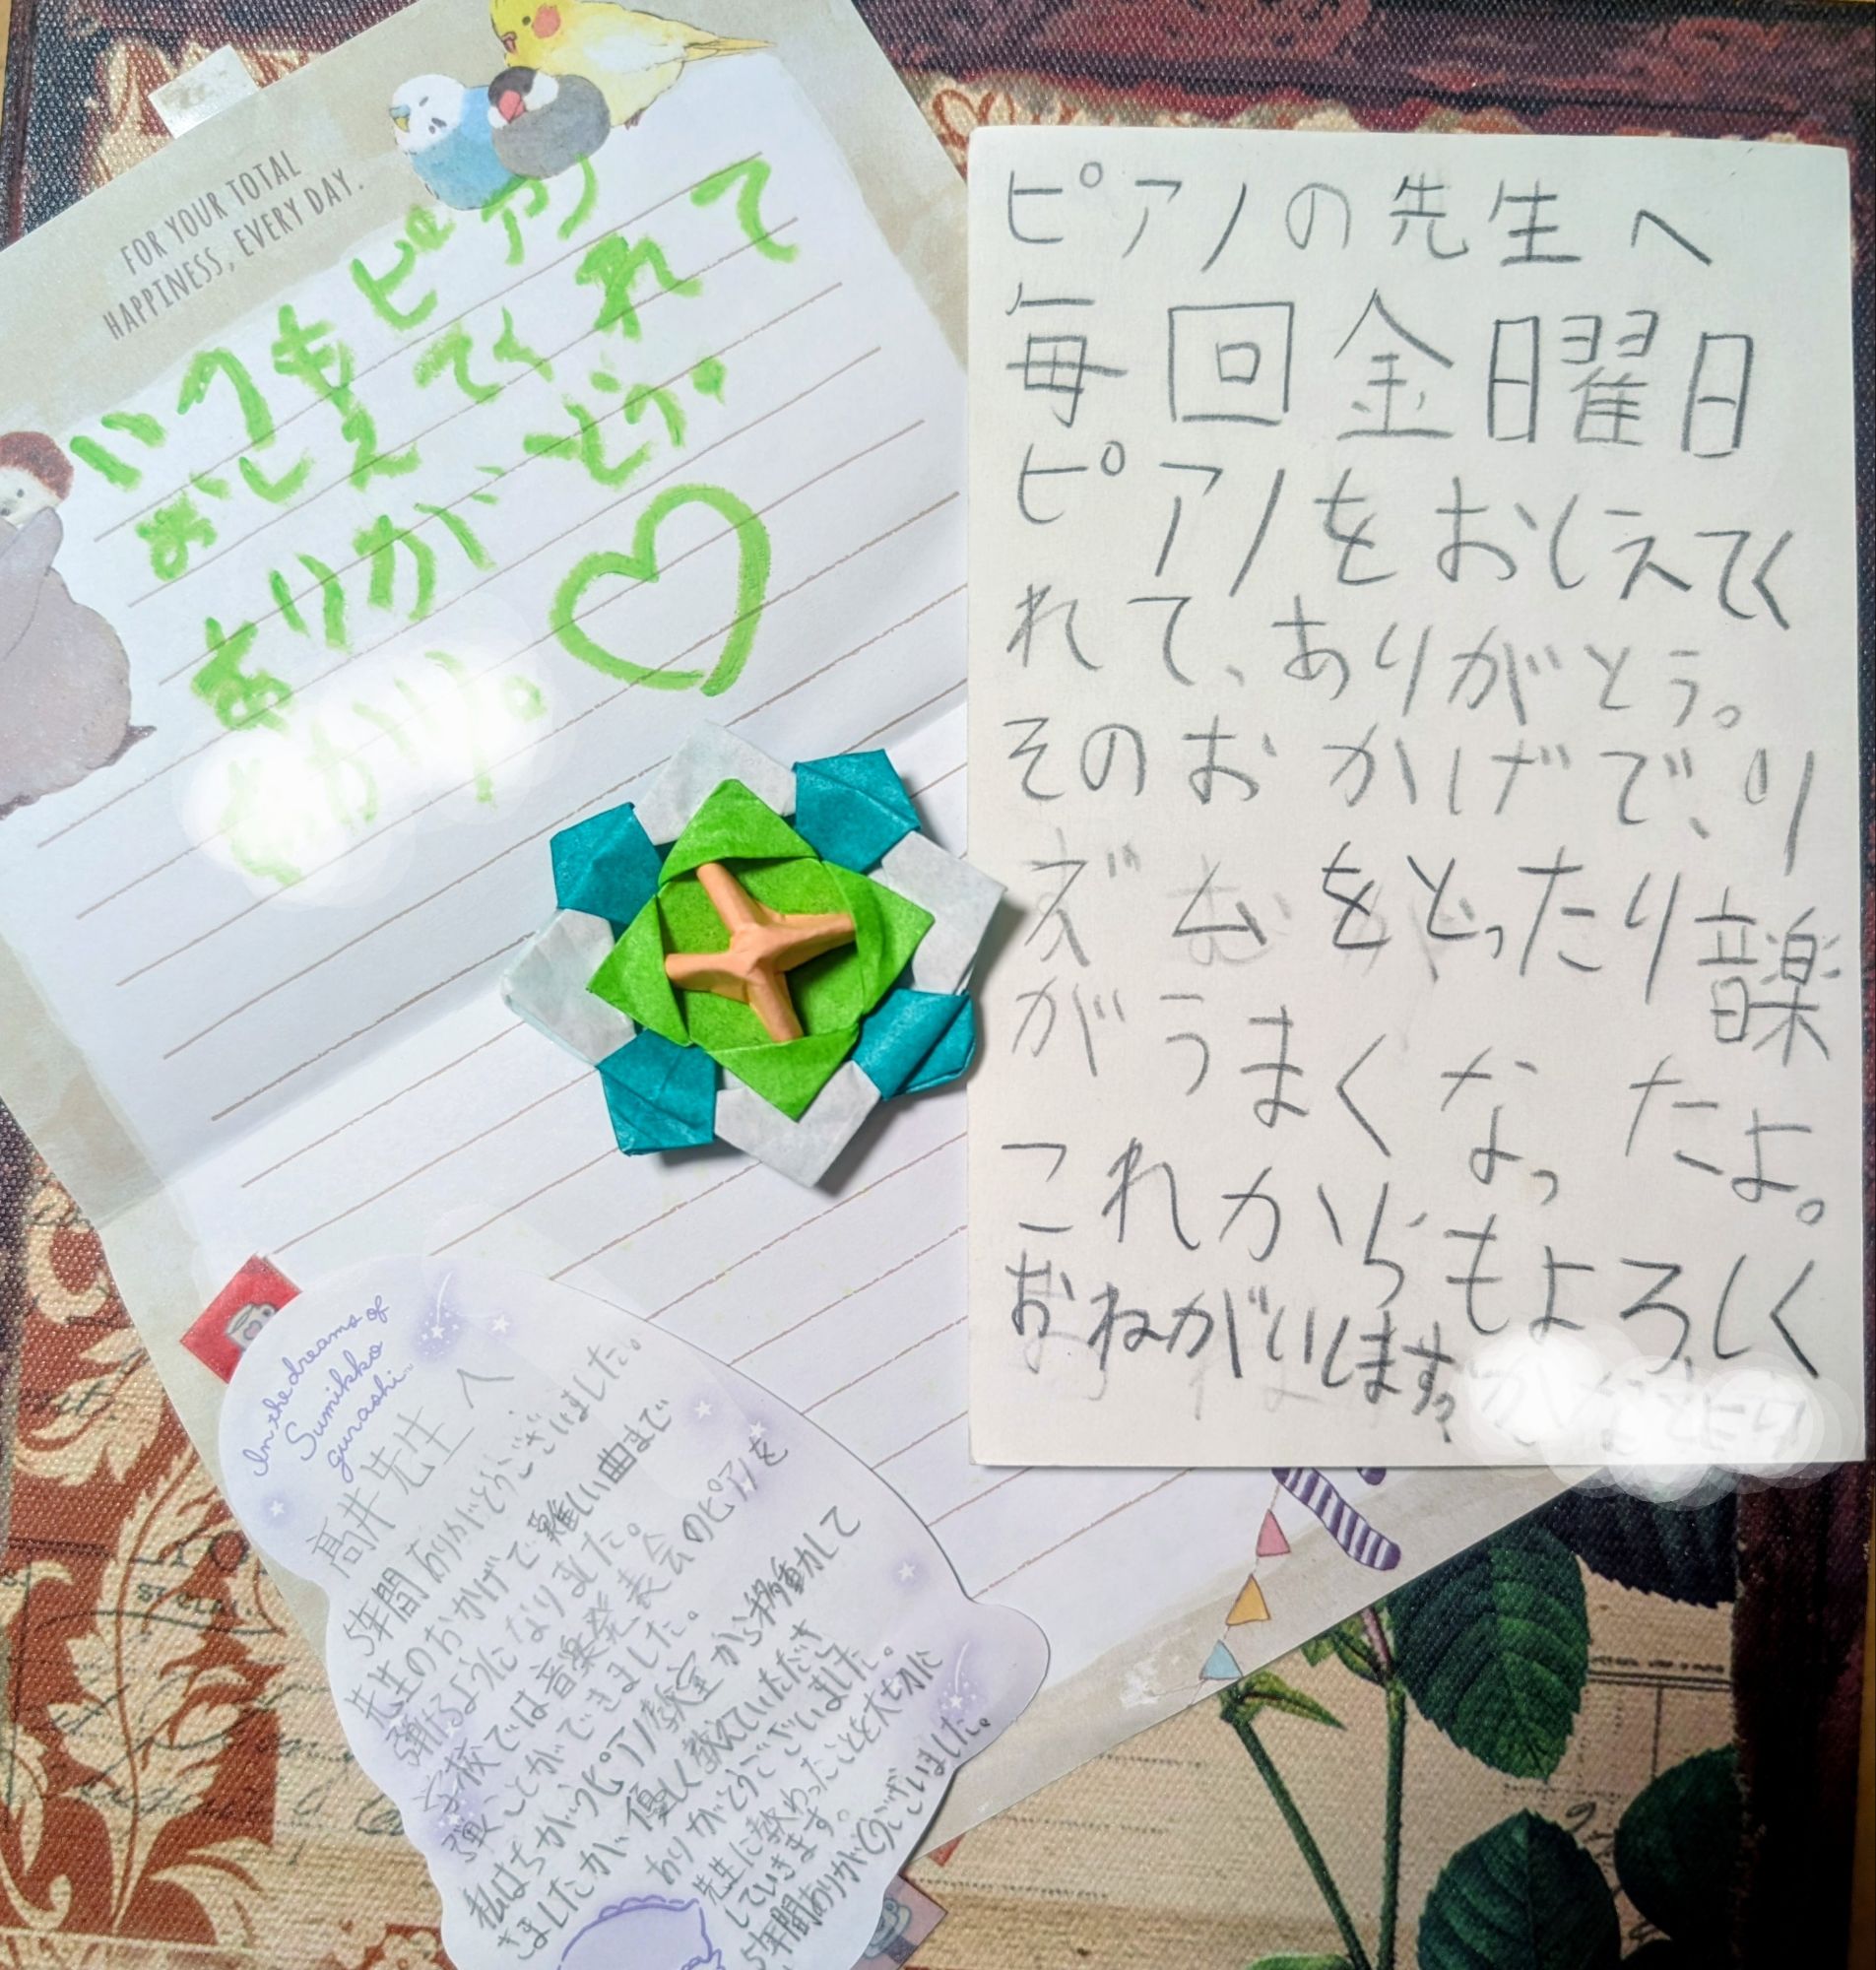 FOR YOUR TOTAL
HAPPINESS, EVERY DAY.
いつもピアノ
おしえてくれて
ありがとう。
ピアノの先生へ
毎回金曜日
ピアノをおしえてく
れて、ありがとう。
そのおかげで、リ
ズムをとったり音楽
がうまくなったよ。
これからもよろしく
おねがいします
In the dreams of
Sumikko
gurashi
髙井先生へ
5年間ありがとうございました。
先生のおかげで難しい曲まで
弾けるようになりました。
学校では音楽発表会のピアノを
弾くことができました。
私はちがうピアノ教室から移動して
きましたが優しく教えていただき
ありがとうございました。
先生に教わったことを大切に
していきます。
5年間ありがとうございました。